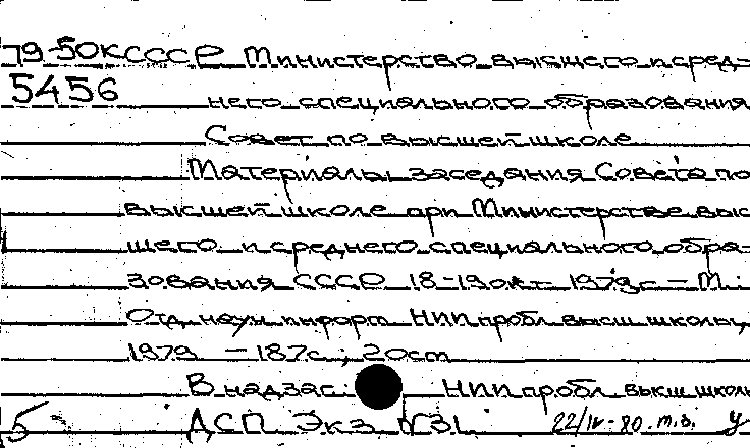 79-50К СССР Министерство высшего и сред-
5456 него специального образования
Совет по высшей школе
Материалы заседания Совета по
высшей школе при Министерстве выс
шего и среднего специального обра-
зования СССР 18-19 окт 1979г – М:
Отд научн информ НИИ пробл высш школы,
1979 – 187с; 20см
В надзаг: НИИ пробл высш школы
5 ДСП Экз N31 22/IV-80. т.з. У